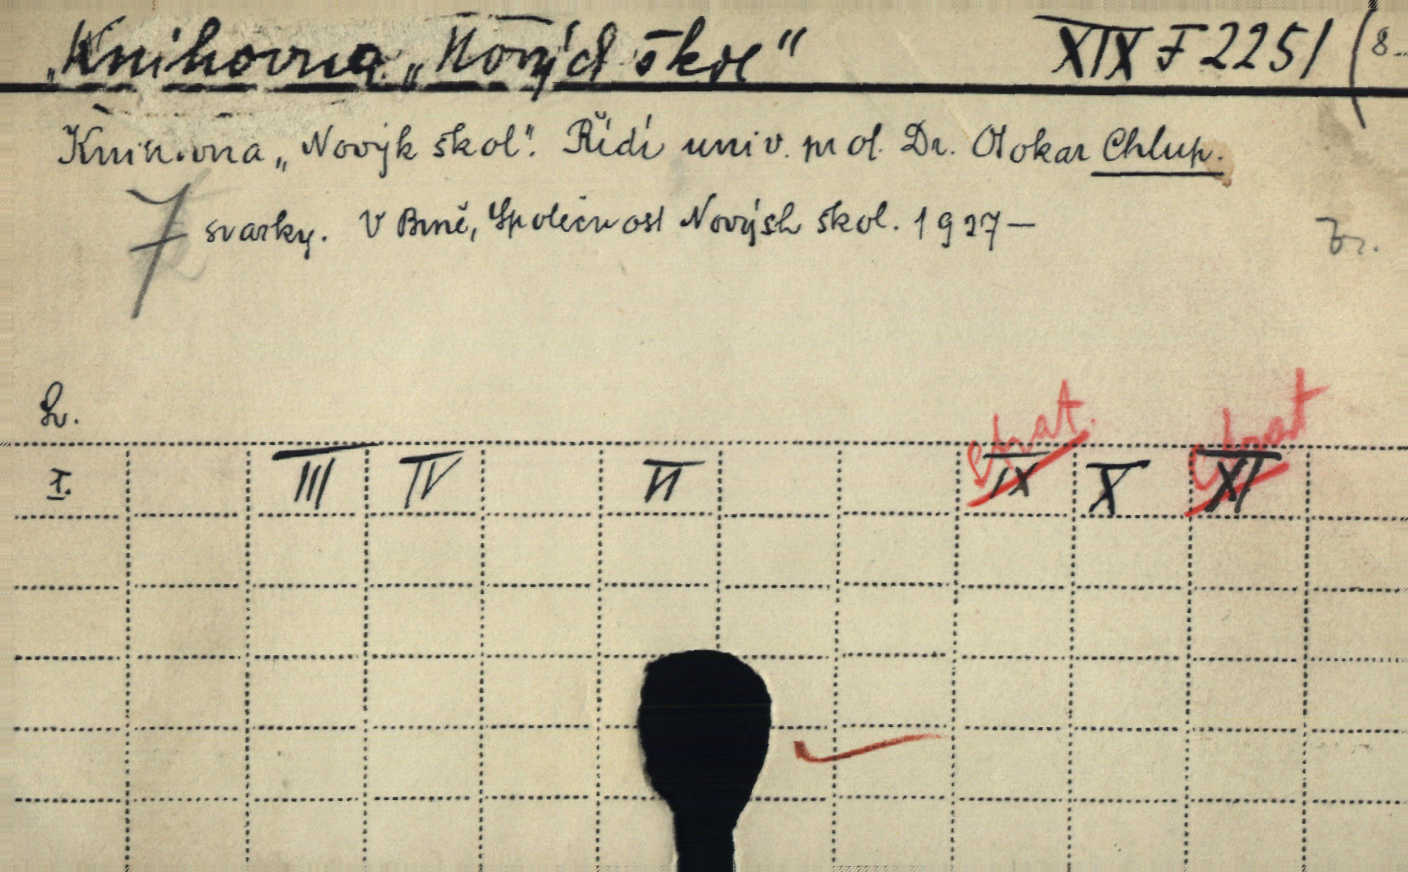 „Knihovna „Nových škol“ XIX F 2251 (8-
Knihovna „Novýh škol“. Řídí univ. prof. Dr. Otokar Chlup.
7 svazky. V Brně, Společnost Nových škol. 1927—
ztrat. ztrat
I. III IV VI IX X XI